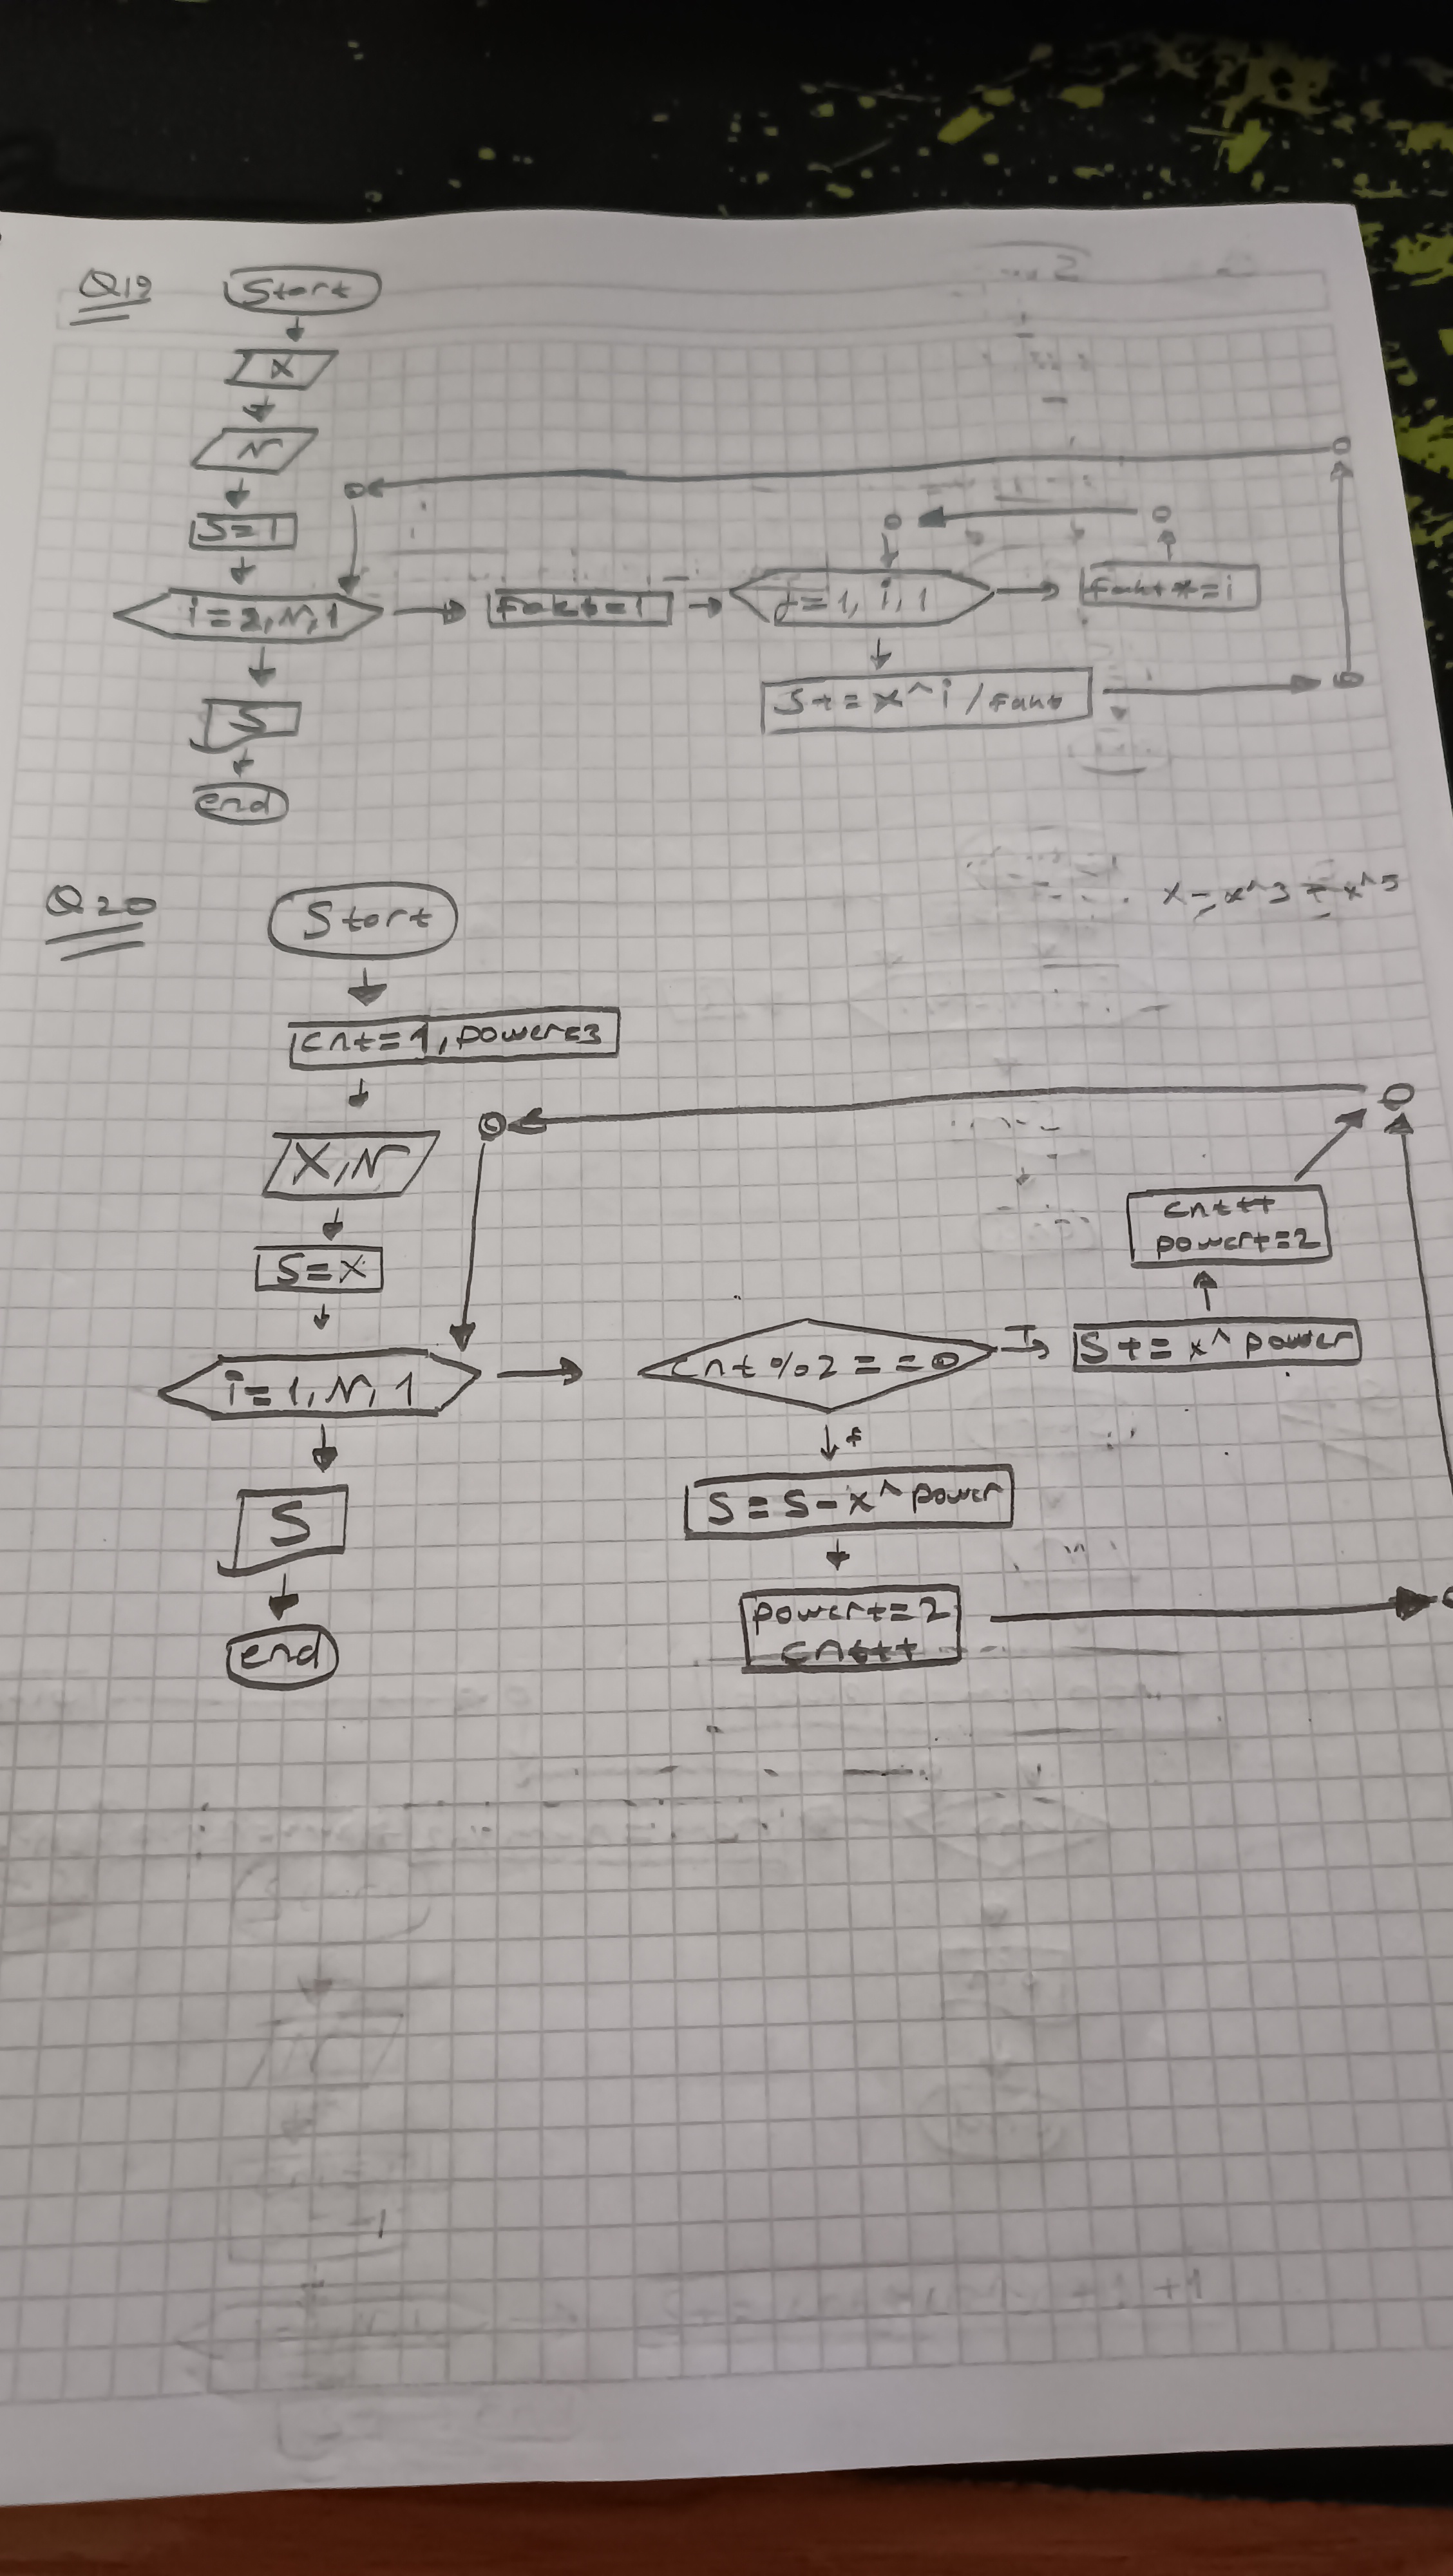 Q19
Start
X
N
S=1
i=2,N,1
fakt=1
j=1, i, 1
fakt*=i
S+=x^i/fakt
S
end
Q20
x-x^3+x^5
Start
cnt=1, power=3
X,N
S=X
i=1,N,1
cnt%2==0
T
S+=x^power
cnt++
power+=2
f
S=S-x^power
power+=2
cnt++
S
end
+1